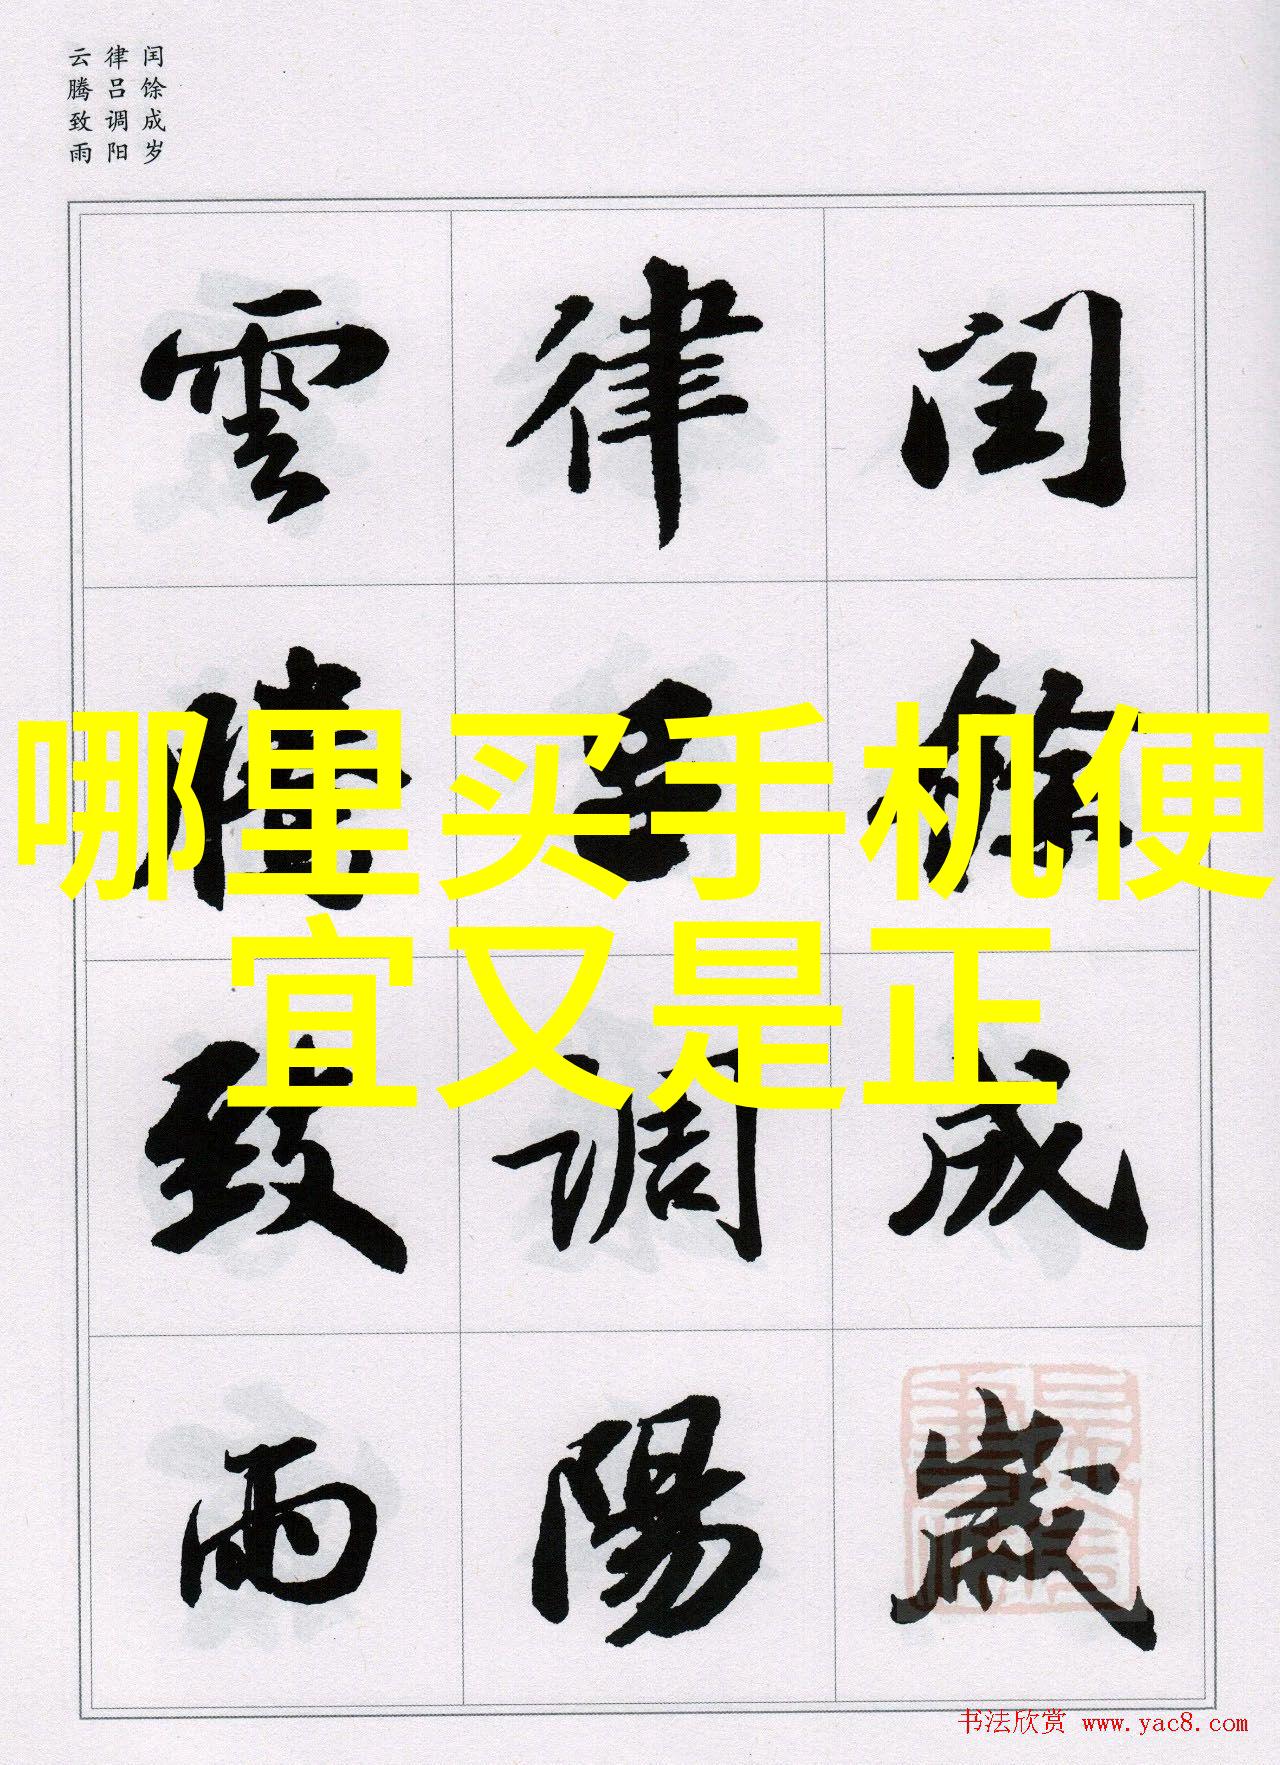 闰馀成岁
律吕调阳
云腾致雨
閏餘成歲
律呂調陽
雲騰致雨
哪里买手机便
宜又是正
书法欣赏 www.yac8.com